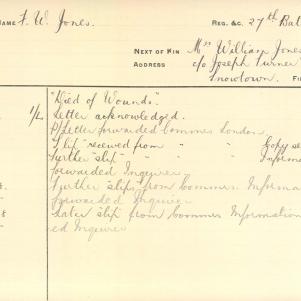 NAME F. W. Jones. REG. &C. 27th Bat
NEXT OF KIN Mrs William Jones
ADDRESS c/o Joseph Turner
Snowtown. F
"Died of Wounds".
1/2 Letter acknowledged.
Letter forwarded Commr London
"Slip" received from " " Copy se
Further "slip" " " Informa
forwarded Inquirer
Further "slip" from Commr. Informa
forwarded Inquirer
Later "slip" from Commr Information
ed Inquirer